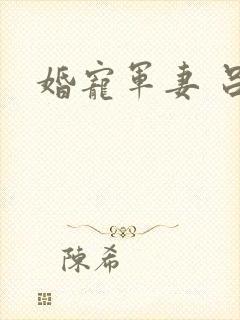 婚寵軍妻
陳希